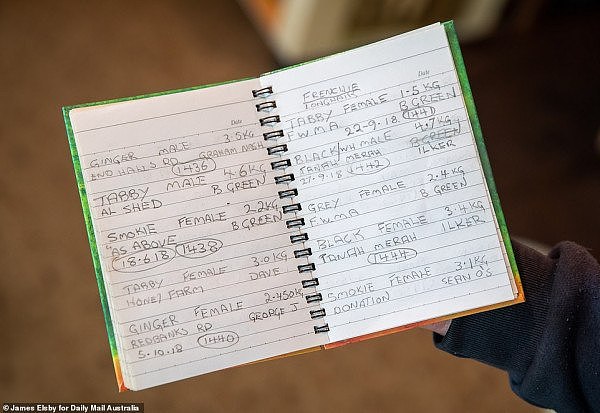 Date
GINGER MALE 3.5KG
END HALLS RD GRAHAM NASH
1436
TABBY MALE 4.6KG
AL SHED B GREEN
SMOKIE FEMALE 2.2KG
"AS ABOVE B GREEN
18.6.18 1438
TABBY FEMALE 3.01KG
HONEY FARM DAVE
GINGER FEMALE 2.450KG
REDBANKS RD GEORGE J
5.10.18 1440
Date
FRENCHIE
LONGHAIR
TABBY FEMALE 1.5KG
F.W.M.A 22-9-18 B GREEN
1441
BLACK/WH MALE 4.7KG
TANAH MERAH B GREEN
27-9-18 1442 ILKER
GREY FEMALE 2.4KG
F.W.M.A B GREEN
BLACK FEMALE 3.4KG
TANAH MERAH ILKER
1444
SMOKIE FEMALE 3.1KG
DONATION SEAN O'S
© James Elsby for Daily Mail Australia